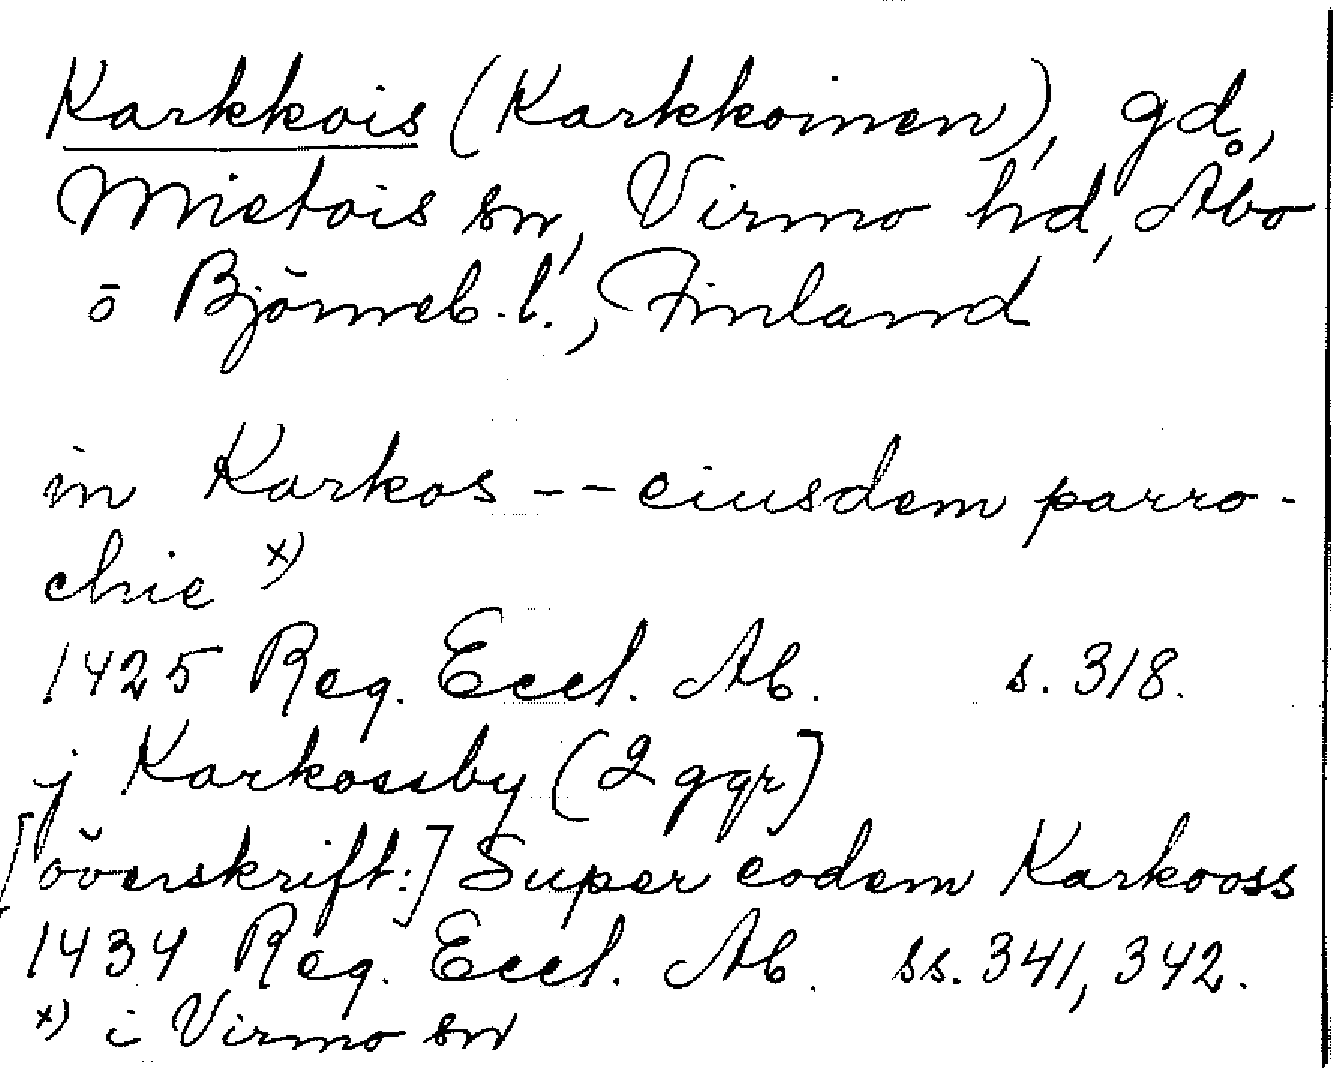 Karkkois (Karkkoinen), gd,
Mietois sn, Virmo hd, Åbo
o Björneb. l., Finland
in Karkos -- eiusdem parro-
chie x)
1425 Reg. Eccl. Ab. s. 318.
j Karkossby (2 ggr)
[överskrift:] Super eodem Karkooss
1434 Reg. Eccl. Ab. ss. 341, 342.
x) i Virmo sn